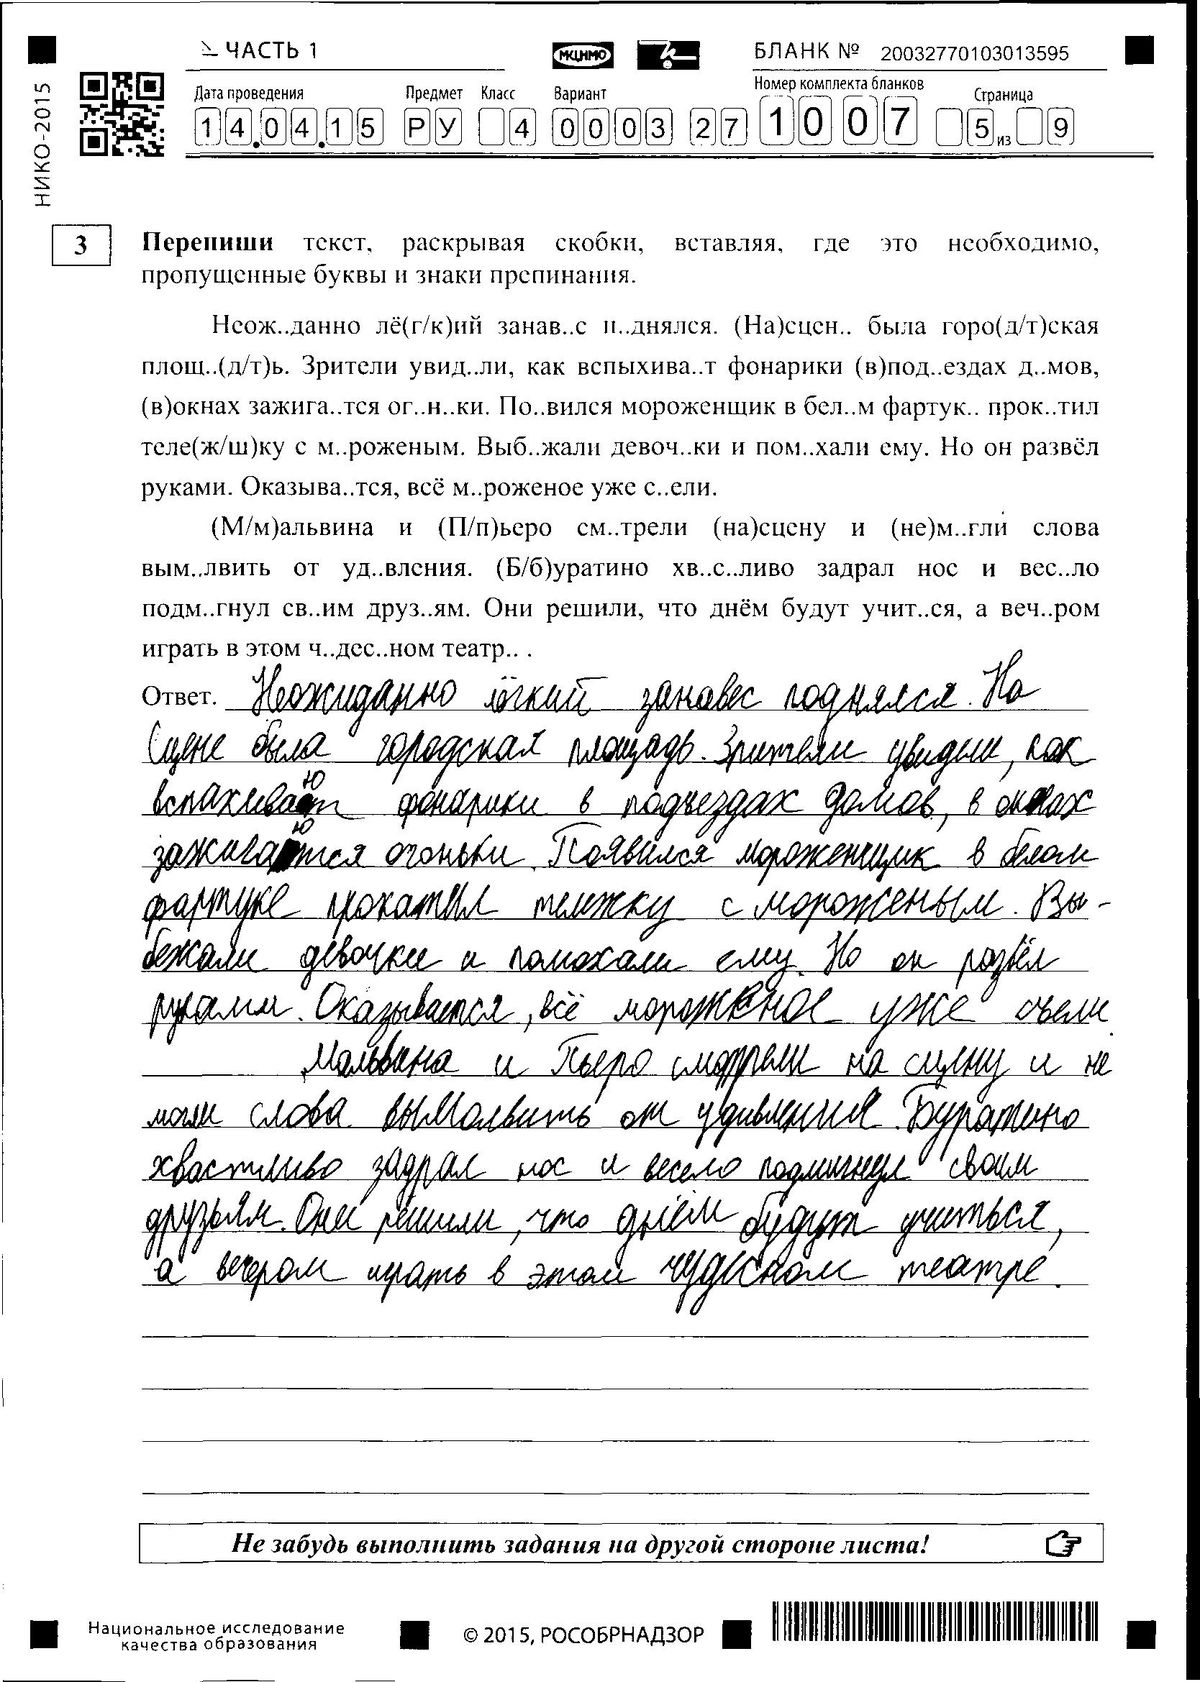 ЧАСТЬ 1
МКЦНМО
БЛАНК № 20032770103013595
НИКО-2015
Дата проведения Предмет Класс Вариант Номер комплекта бланков Страница
14.04.15 РУ 4 0003 27 1007 5 из 9
3
Перепиши текст, раскрывая скобки, вставляя, где это необходимо,
пропущенные буквы и знаки препинания.
Неож..данно лё(г/к)ий занав..с п..днялся. (На)сцен.. была горо(д/т)ская
площ..(д/т)ь. Зрители увид..ли, как вспыхива..т фонарики (в)под..ездах д..мов,
(в)окнах зажига..тся ог..н..ки. По..вился мороженщик в бел..м фартук.. прок..тил
теле(ж/ш)ку с м..роженым. Выб..жали девоч..ки и пом..хали ему. Но он развёл
руками. Оказыва..тся, всё м..роженое уже с..ели.
(М/м)альвина и (П/п)ьеро см..трели (на)сцену и (не)м..гли слова
вым..лвить от уд..вления. (Б/б)уратино хв..с..ливо задрал нос и вес..ло
подм..гнул св..им друз..ям. Они решили, что днём будут учит..ся, а веч..ром
играть в этом ч..дес..ном театр.. .
Ответ. Неожиданно лёгкий занавес поднялся. На
Сцене была городская площадь. Зрители увидели, как
вспахивают фонарики в подъездах домов, в окнах
зажигаются огоньки. Появился мороженщик в белом
фартуке прокатил тележку с мороженым. Вы-
бежали девочки и помохали ему. Но он развёл
руками. Оказывается, всё мороженое уже съели.
Мальвина и Пьеро смотрели на сцену и не
могли слова вымолвить от удивления. Буратино
хвастливо задрал нос и весело подмигнул своим
друзьям. Они решили, что днём будут учиться,
а вечером играть в этом чудесном театре.
Не забудь выполнить задания на другой стороне листа!
Национальное исследование
качества образования
© 2015, РОСОБРНАДЗОР